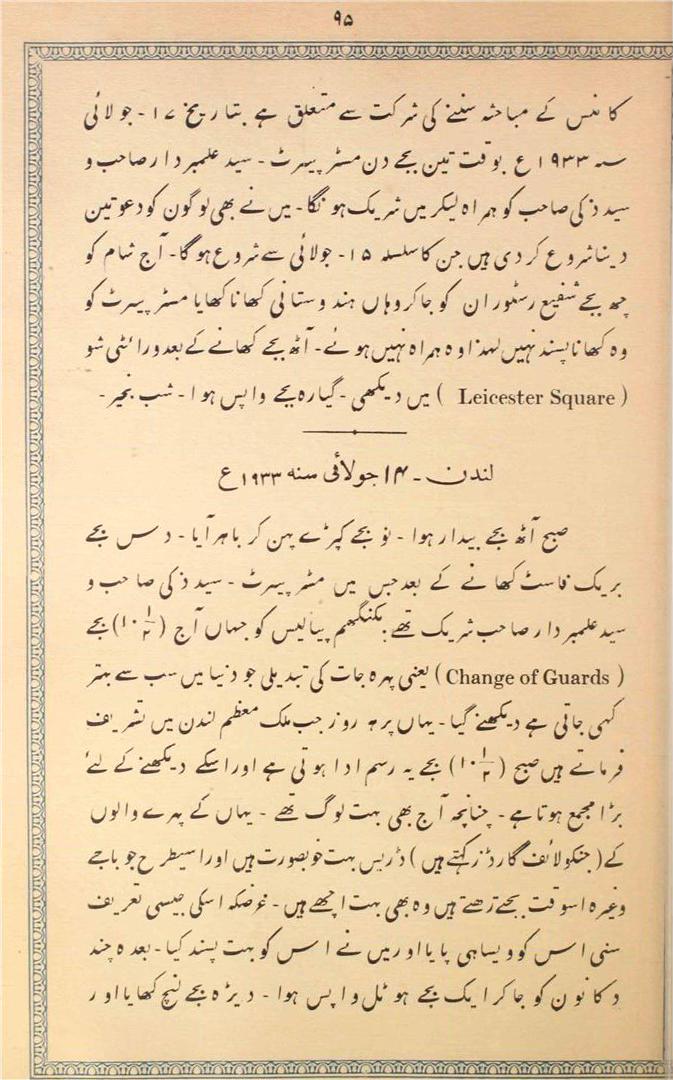 ۹۵
کانفنس کے مباحثہ سننے کی شرکت سے متعلق ہے بتاریخ ۱۷ - جولائی
سنہ ۱۹۳۳ ع بوقت تین بجے دن مسٹر پیسرٹ - سید علمبردار صاحب و
سید ذکی صاحب کو ہمراہ لیکر میں شریک ہونگا - میں نے بھی لوگون کو دعوتین
دینا شروع کر دی ہیں جن کا سلسلہ ۱۵ - جولائی سے شروع ہوگا - آج شام کو
چھ بجے شفیع رسٹوران کو جاکر وہاں ہندوستانی کھانا کھایا مسٹر پیسرٹ کو
وہ کھانا پسند نہیں لہذا وہ ہمراہ نہیں ہوئے - آٹھ بجے کھانے کے بعد ورائٹی شو
( Leicester Square ) میں دیکھی - گیارہ بجے واپس ہوا - شب بخیر -
لندن - ۱۴ جولائی سنہ ۱۹۳۳ ع
صبح آٹھ بجے بیدار ہوا - نو بجے کپڑے پہن کر باہر آیا - دس بجے
بریک فاسٹ کھانے کے بعد جس میں مسٹر پیسرٹ - سید ذکی صاحب و
سید علمبردار صاحب شریک تھے بکنگھم پیالیس کو جہاں آج (۱۰ ۱/۲) بجے
( Change of Guards ) یعنی پہرہ جات کی تبدیلی جو دنیا میں سب سے بہتر
کہی جاتی ہے دیکھنے گیا - یہاں پر ہر روز جب ملک معظم لندن میں تشریف
فرماتے ہیں صبح (۱۰ ۱/۲) بجے یہ رسم ادا ہوتی ہے اور اسکے دیکھنے کے لئے
بڑا مجمع ہوتا ہے - چنانچہ آج بھی بہت لوگ تھے - یہاں کے پہرے والوں
کے ( جنکو لائف گارڈز کہتے ہیں ) ڈریس بہت خوبصورت ہیں اور اسیطرح جو باجے
وغیرہ اسوقت بجتے رہتے ہیں وہ بھی بہت اچھے ہیں - غرضکہ اسکی جیسی تعریف
سنی اس کو ویسا ہی پایا اور میں نے اس کو بہت پسند کیا - بعدہ چند
دکانون کو جاکر ایک بجے ہوٹل واپس ہوا - دیڑہ بجے لنچ کھایا اور